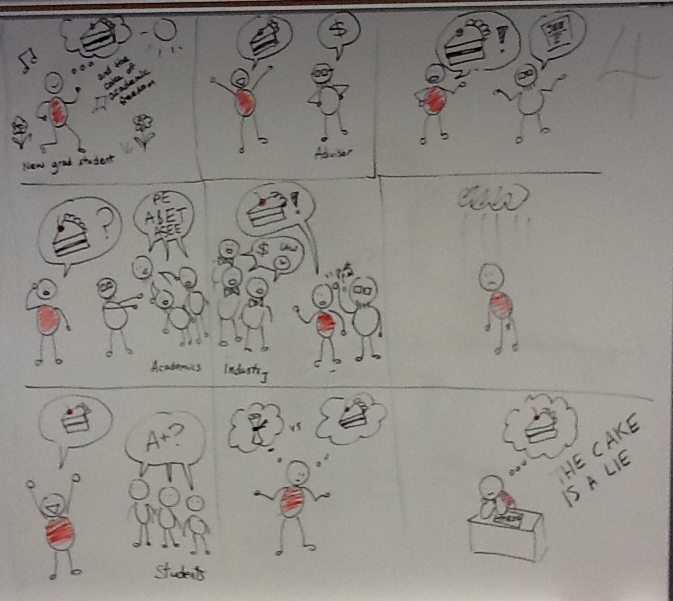 and the
cake of
academic
freedom
New grad student
$
Advisor
!
!
4
?
PE
ABET
ASEE
Academics
!
$
Industry
A+?
Students
vs
THE CAKE
IS A LIE